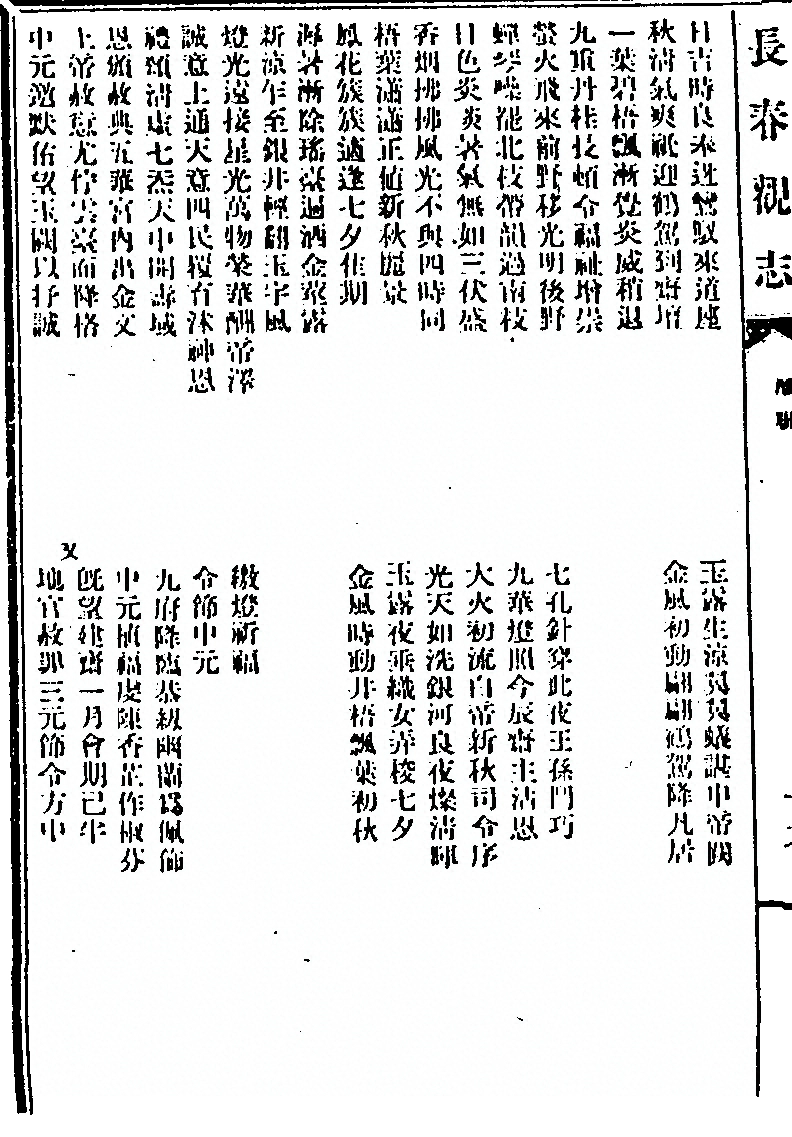 長春觀志
日吉時良奉迓鸞馭來道座
秋清氣爽祇迎鶴駕到齋壇
一葉碧梧飄漸覺炎威稍退
九重丹桂技頓令福祉增崇
螢火飛來前野移光明後野
蟬琴噪罷北枝帶韻過南枝
日色炎炎暑氣無如三伏盛
香烟拂拂風光不與四時同
梧葉瀟瀟正値新秋麗景
鳳花簇簇適逢七夕佳期
溽暑漸除瑤臺遍洒金莖露
新涼乍至銀井輕翻玉宇風
燈光遠接星光萬物榮華酬帝澤
誠意上通天意四民稷育沐神恩
禮頌清虛七炁天中開壽域
恩頒赦典五華宮內出金文
上帝赦愆尤佇雲臺而降格
中元邀默佑望玉闕以抒誠
玉露生涼員員蟻諶申帝闕
金風初動翩翩鶴駕降凡居
七孔針穿此夜王孫鬥巧
九華燈照今辰齋主沾恩
大火初流白帝新秋司令序
光天如洗銀河良夜燦清輝
玉露夜垂織女弄梭七夕
金風時動井梧飄葉初秋
繳燈祈福
令節中元
九府降臨恭紉幽蘭爲佩飾
中元植福虔陳香芷作椒芬
旣望建齋一月會期已半
又
地官赦罪三元節令方中